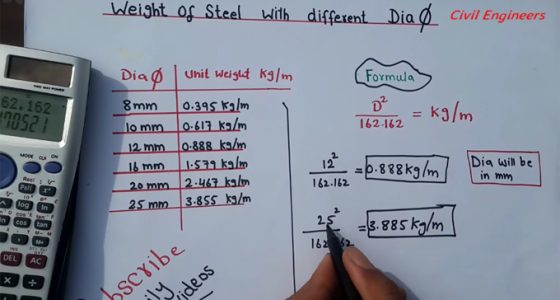 Weight Of Steel With different Dia Ø
Civil Engineers
Dia Ø Unit Weight Kg/m
8mm 0.395 Kg/m
10mm 0.617 Kg/m
12mm 0.888 Kg/m
16mm 1.579 Kg/m
20mm 2.467 Kg/m
25mm 3.855 Kg/m
Formula
D²/162.162 = Kg/m
12²/162.162 = 0.888kg/m
Dia will be
in mm
25²/162.162 = 3.885kg/m
62.162
70521
MODE CLR ON
DEL AC